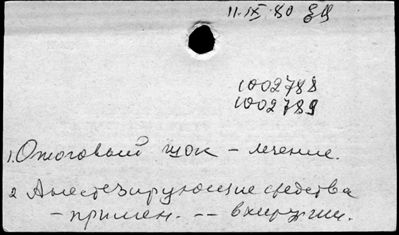 11.IX.80
1002788
1002789
1. Ожоговый шок - лечение.
2 Анестезирующие средства
- примен. -- в хирургии.